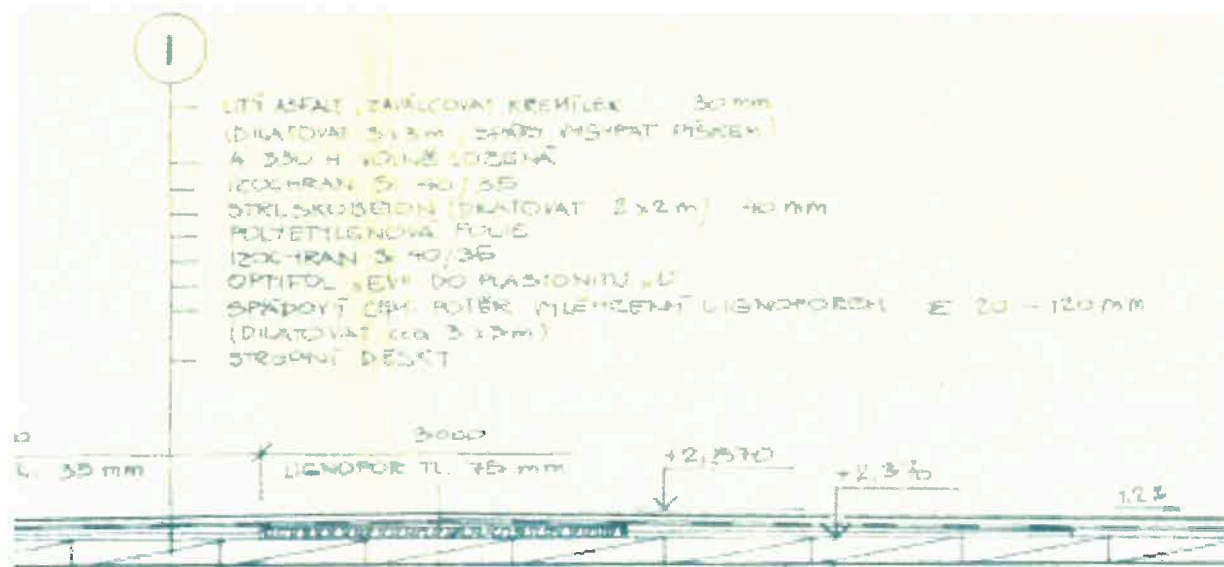 1
LITÝ ASFALT, ZAVÁLCOVAT KŘEMÍLEK 30 mm
(DILATOVAT 3x3m, SPÁRY VYSYPAT PÍSKEM)
A 330 H VOLNĚ LOŽENÁ
IZOCHRAN SI 40/35
BETON (DILATOVAT 2x2 m) 40 mm
POLYETYLENOVÁ FOLIE
IZOCHRAN SI 40/35
OPTIFOL "EV" DO PLASTONITU "U"
SPÁDOVÝ CEM. POTĚR VYLEHČENÝ LIGNOPOREM 20 - 120 mm
(DILATOVAT cca 3x3m)
STROPNÍ DESKY
3000
35 mm
LIGNOPOR TL. 75 mm
1,2%